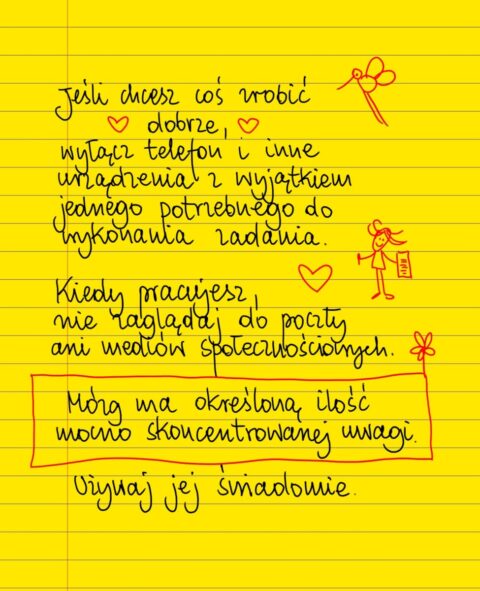 Jeśli chcesz coś zrobić
dobrze,
wyłącz telefon i inne
urządzenia z wyjątkiem
jednego potrzebnego do
wykonania zadania.
Kiedy pracujesz,
nie zaglądaj do poczty
ani mediów społecznościowych.
Mózg ma określoną ilość
mocno skoncentrowanej uwagi.
Używaj jej świadomie.